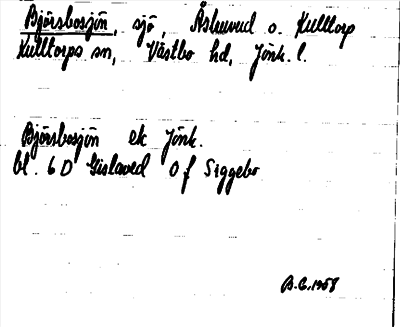 Björsbosjön, sjö, Åshuvud o. Kulltorp
Kulltorps sn, Västbo hd, Jönk. l.
Björsbosjön ek Jönk.
bl. 6 D Gislaved 0 f Siggebo
B.G. 1958